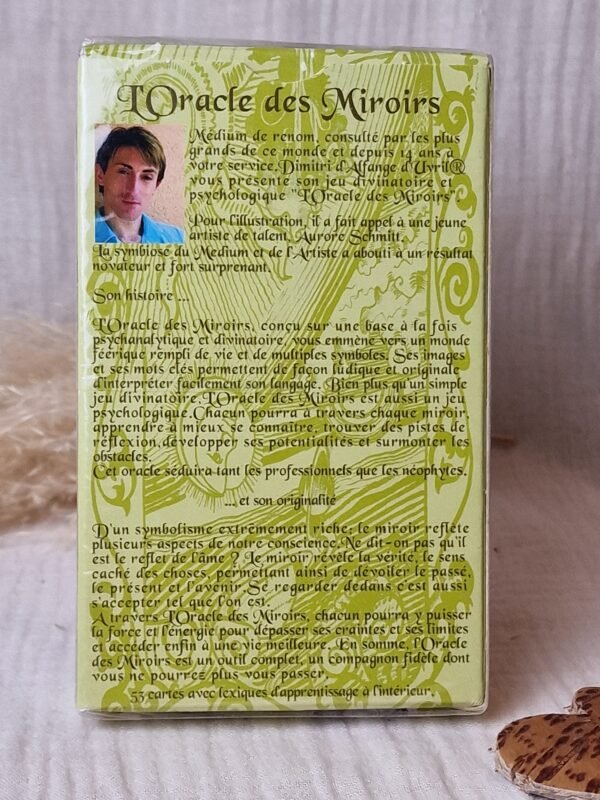 L'Oracle des Miroirs
Médium de renom, consulté par les plus
grands de ce monde et depuis 14 ans à
votre service, Dimitri d'Alfange d'Uvril®
vous présente son jeu divinatoire et
psychologique "L'Oracle des Miroirs".
Pour l'illustration, il a fait appel à une jeune
artiste de talent, Aurore Schmitt.
La symbiose du Medium et de l'Artiste a abouti à un résultat
novateur et fort surprenant.
Son histoire ...
L'Oracle des Miroirs, conçu sur une base à la fois
psychanalytique et divinatoire, vous emmène vers un monde
féerique rempli de vie et de multiples symboles. Ses images
et ses mots clés permettent de façon ludique et originale
d'interpréter facilement son langage. Bien plus qu'un simple
jeu divinatoire, L'Oracle des Miroirs est aussi un jeu
psychologique. Chacun pourra à travers chaque miroir,
apprendre à mieux se connaître, trouver des pistes de
réflexion, développer ses potentialités et surmonter les
obstacles.
Cet oracle séduira tant les professionnels que les néophytes.
... et son originalité
D'un symbolisme extrêmement riche, le miroir reflète
plusieurs aspects de notre conscience. Ne dit-on pas qu'il
est le reflet de l'âme ? Le miroir révèle la vérité, le sens
caché des choses, permettant ainsi de dévoiler le passé,
le présent et l'avenir. Se regarder dedans c'est aussi
s'accepter tel que l'on est.
A travers L'Oracle des Miroirs, chacun pourra y puiser
la force et l'énergie pour dépasser ses craintes et ses limites
et accéder enfin à une vie meilleure. En somme, l'Oracle
des Miroirs est un outil complet, un compagnon fidèle dont
vous ne pourrez plus vous passer.
53 cartes avec lexiques d'apprentissage à l'intérieur.